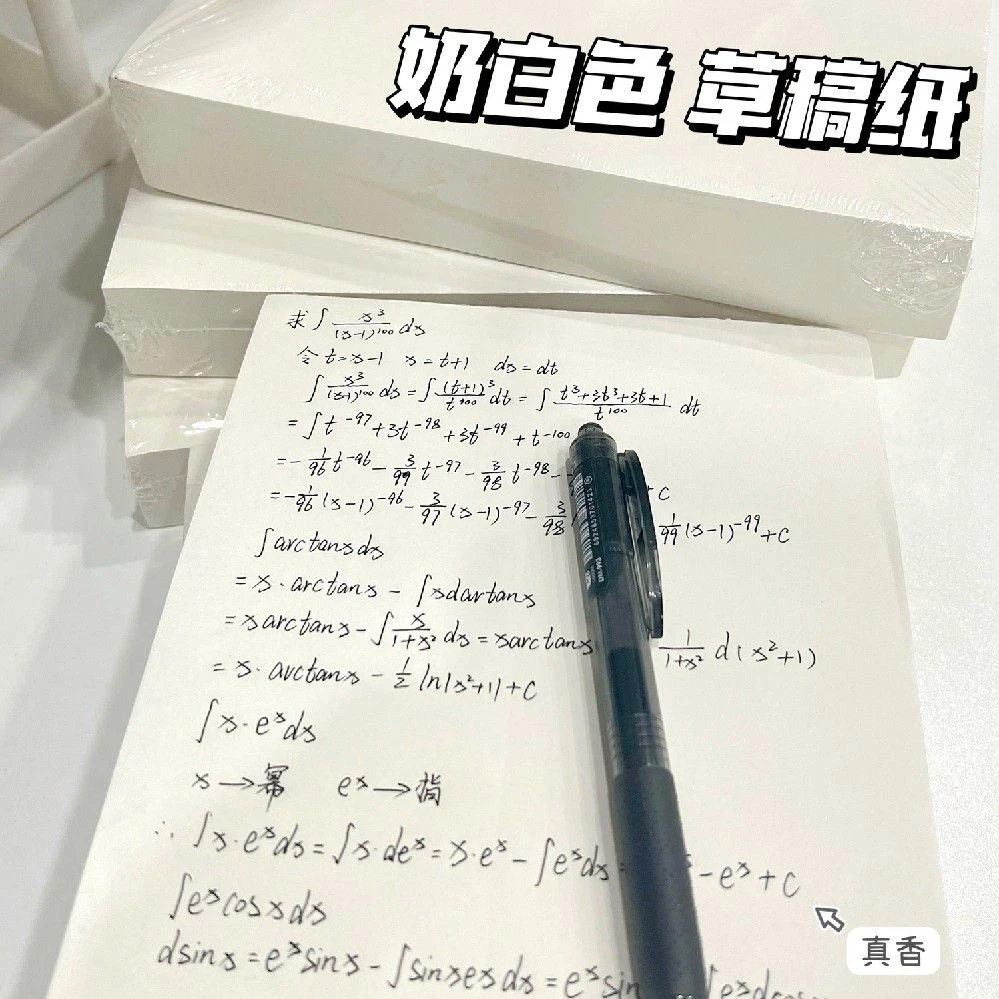 奶白色 草稿纸
求 ∫ x³/(x-1)¹⁰⁰ dx
令 t=x-1 x=t+1 dx=dt
∫ x³/(x-1)¹⁰⁰ dx = ∫ (t+1)³/t¹⁰⁰ dt = ∫ (t³+3t³+3t+1)/t¹⁰⁰ dt
= ∫ t⁻⁹⁷+3t⁻⁹⁸+3t⁻⁹⁹+t⁻¹⁰⁰
= -1/96 t⁻⁹⁶ - 3/99 t⁻⁹⁷ - 3/98 t⁻⁹⁸ - +C
= -1/96 (x-1)⁻⁹⁶ - 3/97 (x-1)⁻⁹⁷ - 3/98 1/99 (x-1)⁻⁹⁹+C
∫ arctanxdx
= x·arctanx - ∫xdartanx
= xarctanx - ∫ x/(1+x²) dx = xarctanx 1/(1+x²) d(x²+1)
= x·arctanx - 1/2 ln|x²+1|+C
∫x·eˣdx
x→幂 eˣ→指
∴ ∫x·eˣdx = ∫x·deˣ = x·eˣ - ∫eˣdx = - eˣ+C
∫eˣcosxdx
dsinx = eˣsinx - ∫sinxexdx = eˣsin
真香